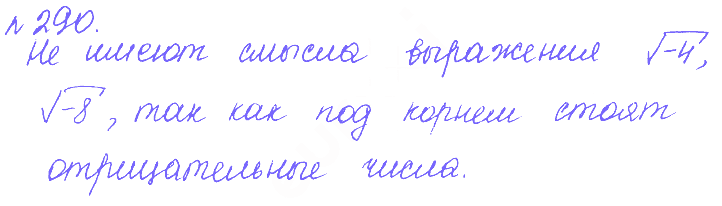 № 290.
Не имеют смысла выражения √-4,
√-8, так как под корнем стоят
отрицательные числа.